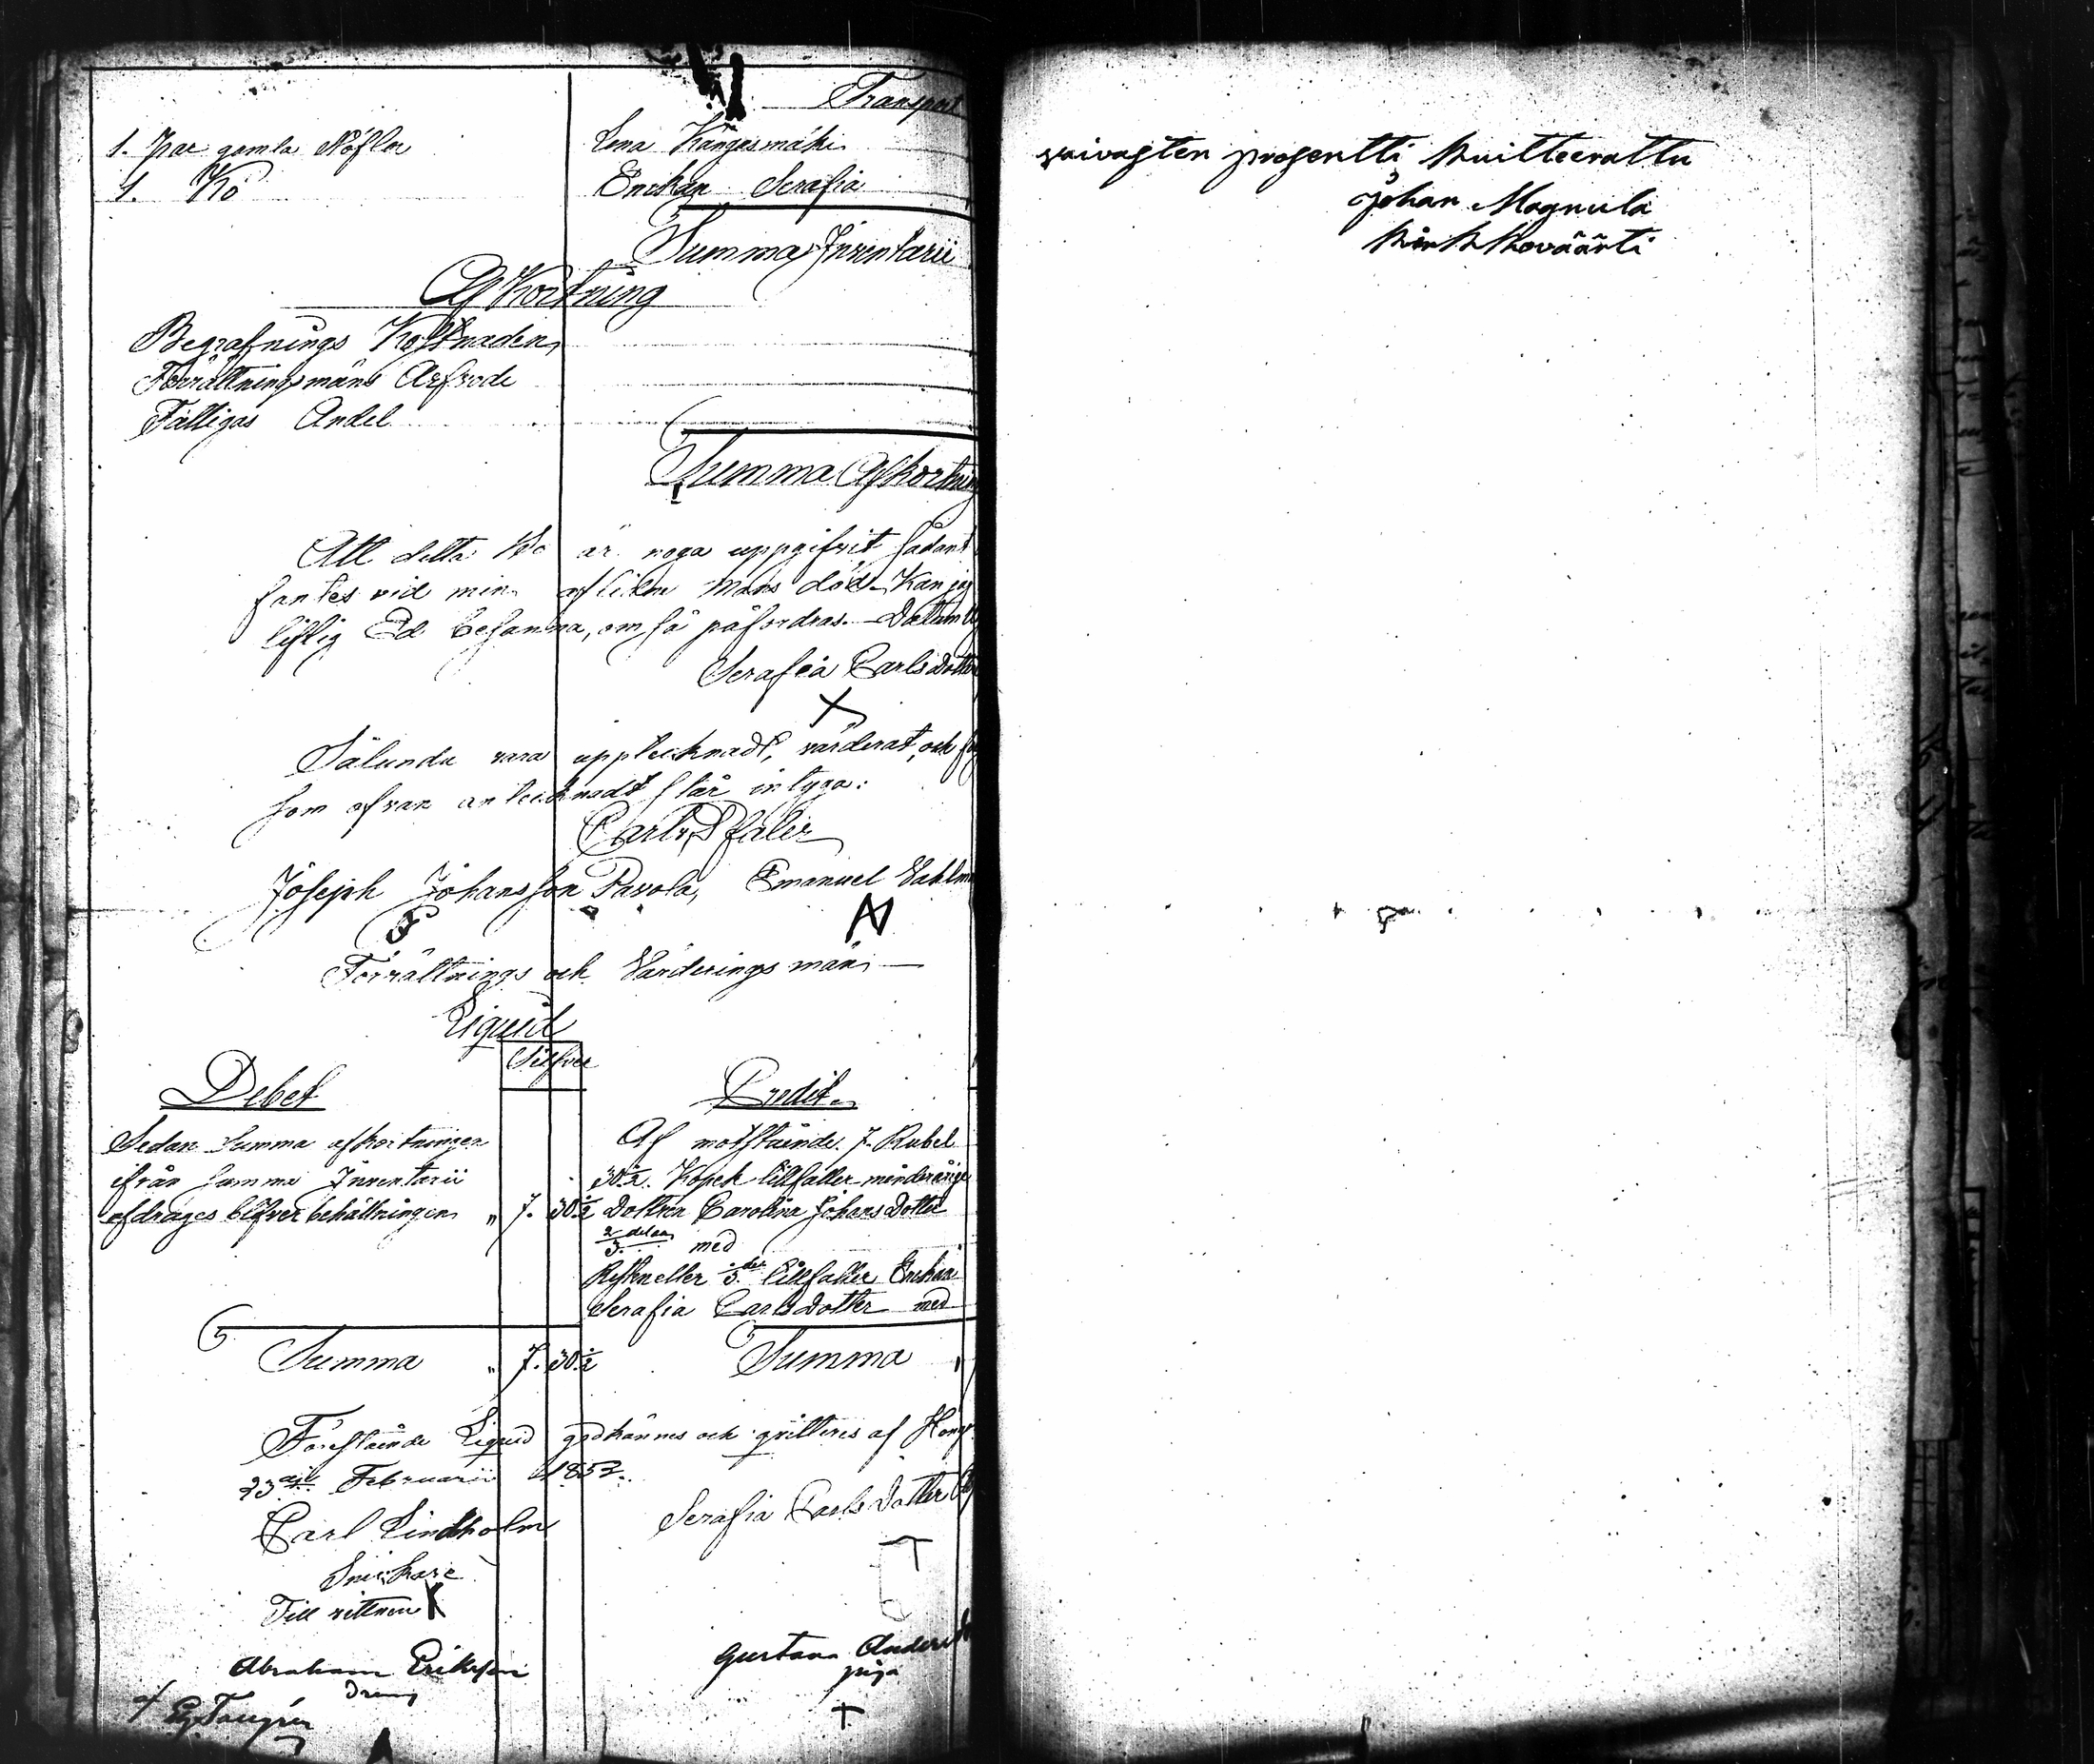 Transport
1. Par gamla Stöflor Lena Kångasmäki
1. Ko Enckan Serafia
Summa Inventarii
Afkortning
Begrafnings Kostnaden
Förrättningsmäns Arfvode
Fattigas Andel
Summa Afkortning
Att detta Bo är noga uppgifvit sådant
fantes vid min aflidne Mans död. Kan jag
liflig Ed besanna, om så påfordras. Datum
Serafia Carlsdotter
Sålunda vara upptecknadt, värderat, och
som ofvan antecknadt står intyga:
Carl Pfaler
Joseph Johansson Pavola, Emanuel Vahlm
Förrättnings och Värderings män
Liquid
Silfver
Debet Credit.
Sedan Summa afkortningen
ifrån Summa Inventarii
afdrages blifver behållningen " 7. 30½
Af motstående 7. Rubel
30½. Kopek tillfaller minderåriga
Dottren Carolina Johans Dotter
2/3 delar med
Resten eller 3:del tillfaller Enckan
Serafia Carlsdotter med
Summa " 7. 30½ Summa "
Förestående Liquid godkännes och qvitteres af
23 Februarii 1853.
Carl Lindholm Serafia Carlsdotter
Snickare
Till vittnen
Abraham Eriksson Gustava Anders
Dreng piga
prosentti kuitteerattu
Johan Magnula